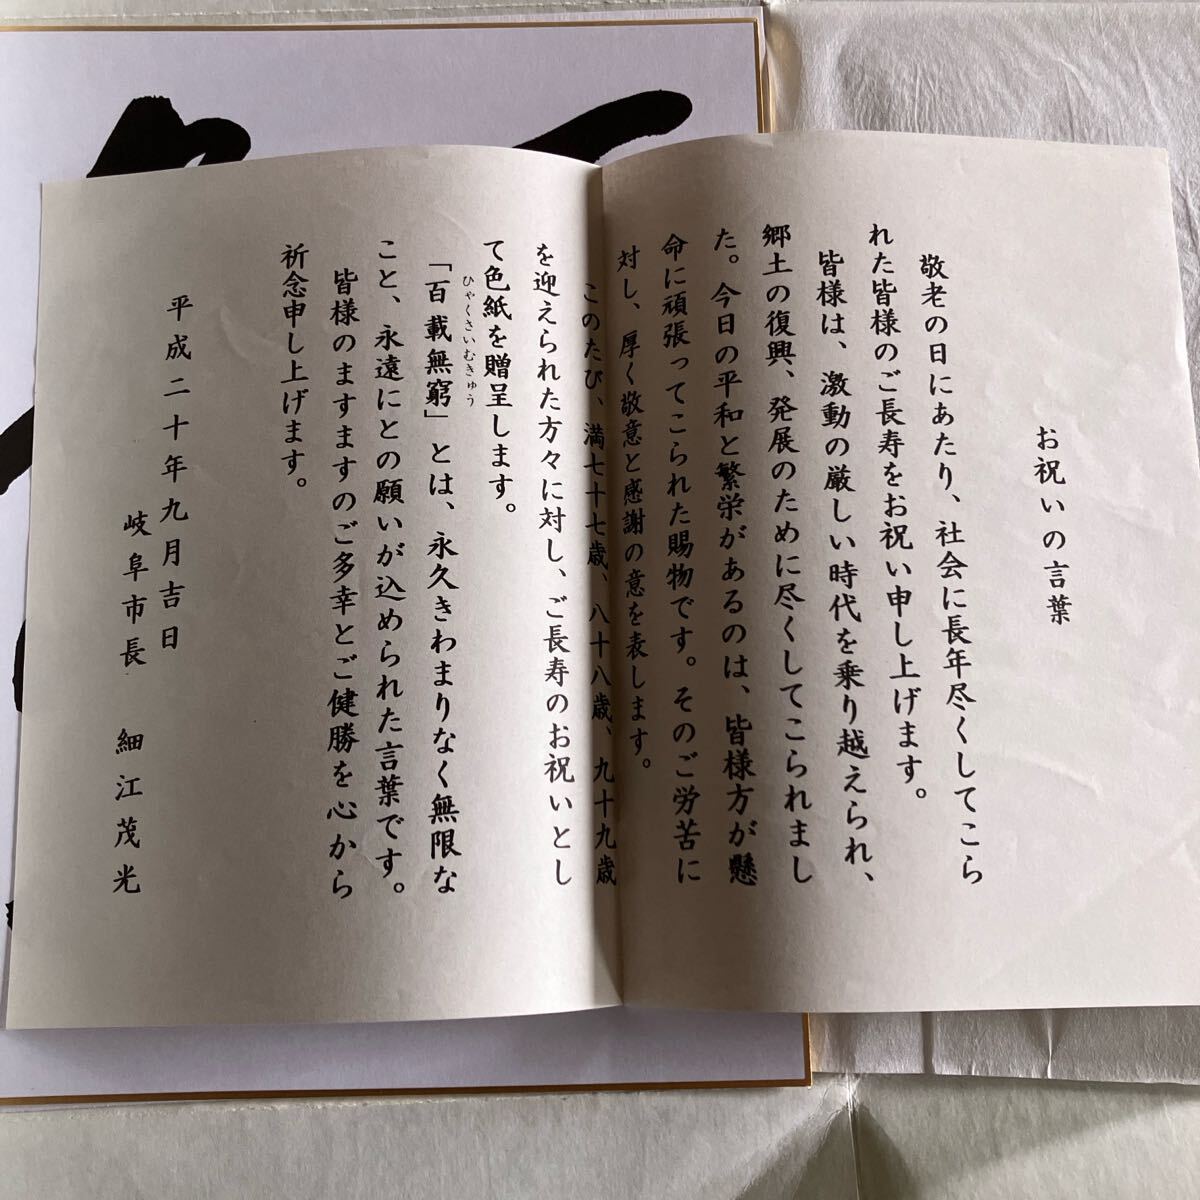 お祝いの言葉
敬老の日にあたり、社会に長年尽くしてこら
れた皆様のご長寿をお祝い申し上げます。
皆様は、激動の厳しい時代を乗り越えられ、
郷土の復興、発展のために尽くしてこられまし
た。今日の平和と繁栄があるのは、皆様方が懸
命に頑張ってこられた賜物です。そのご労苦に
対し、厚く敬意と感謝の意を表します。
このたび、満七十七歳、八十八歳、九十九歳
を迎えられた方々に対し、ご長寿のお祝いとし
て色紙を贈呈します。
ひゃくさいむきゅう
「百載無窮」とは、永久きわまりなく無限な
こと、永遠にとの願いが込められた言葉です。
皆様のますますのご多幸とご健勝を心から
祈念申し上げます。
平成二十年九月吉日
岐阜市長 細江茂光